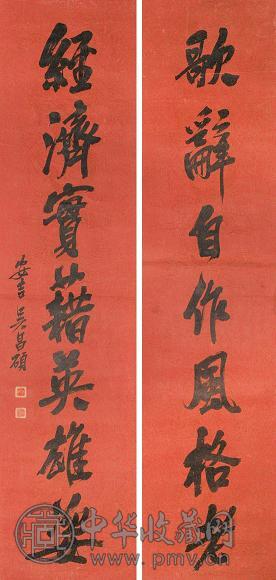 歌辭自作風格老
經濟實藉英雄姿
安吉吳昌碩
中华收藏网
www.pmv.cn